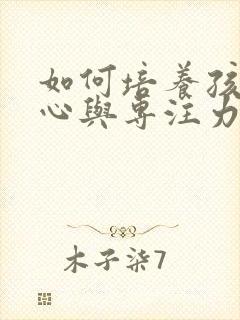 如何培養孩
心與專注力
木子柒7